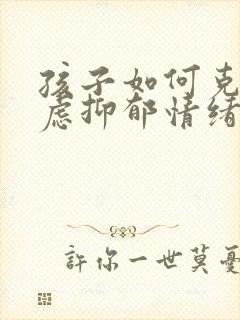 孩子如何克
虑抑郁情绪
許你一世莫憂